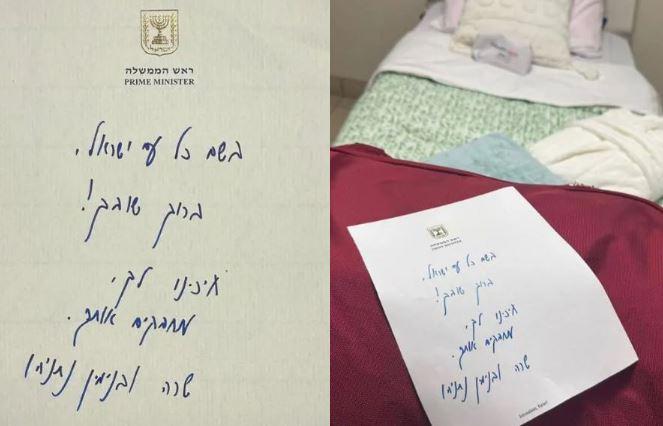 ראש הממשלה
PRIME MINISTER
בשם כל עם ישראל,
ברוך שובך!
חיכינו לך,
מחבקים אותך.
שרה ובנימין נתניהו
ראש הממשלה
PRIME MINISTER
בשם כל עם ישראל,
ברוך שובך!
חיכינו לך,
מחבקים אותך.
שרה ובנימין נתניהו
Jerusalem, Israel